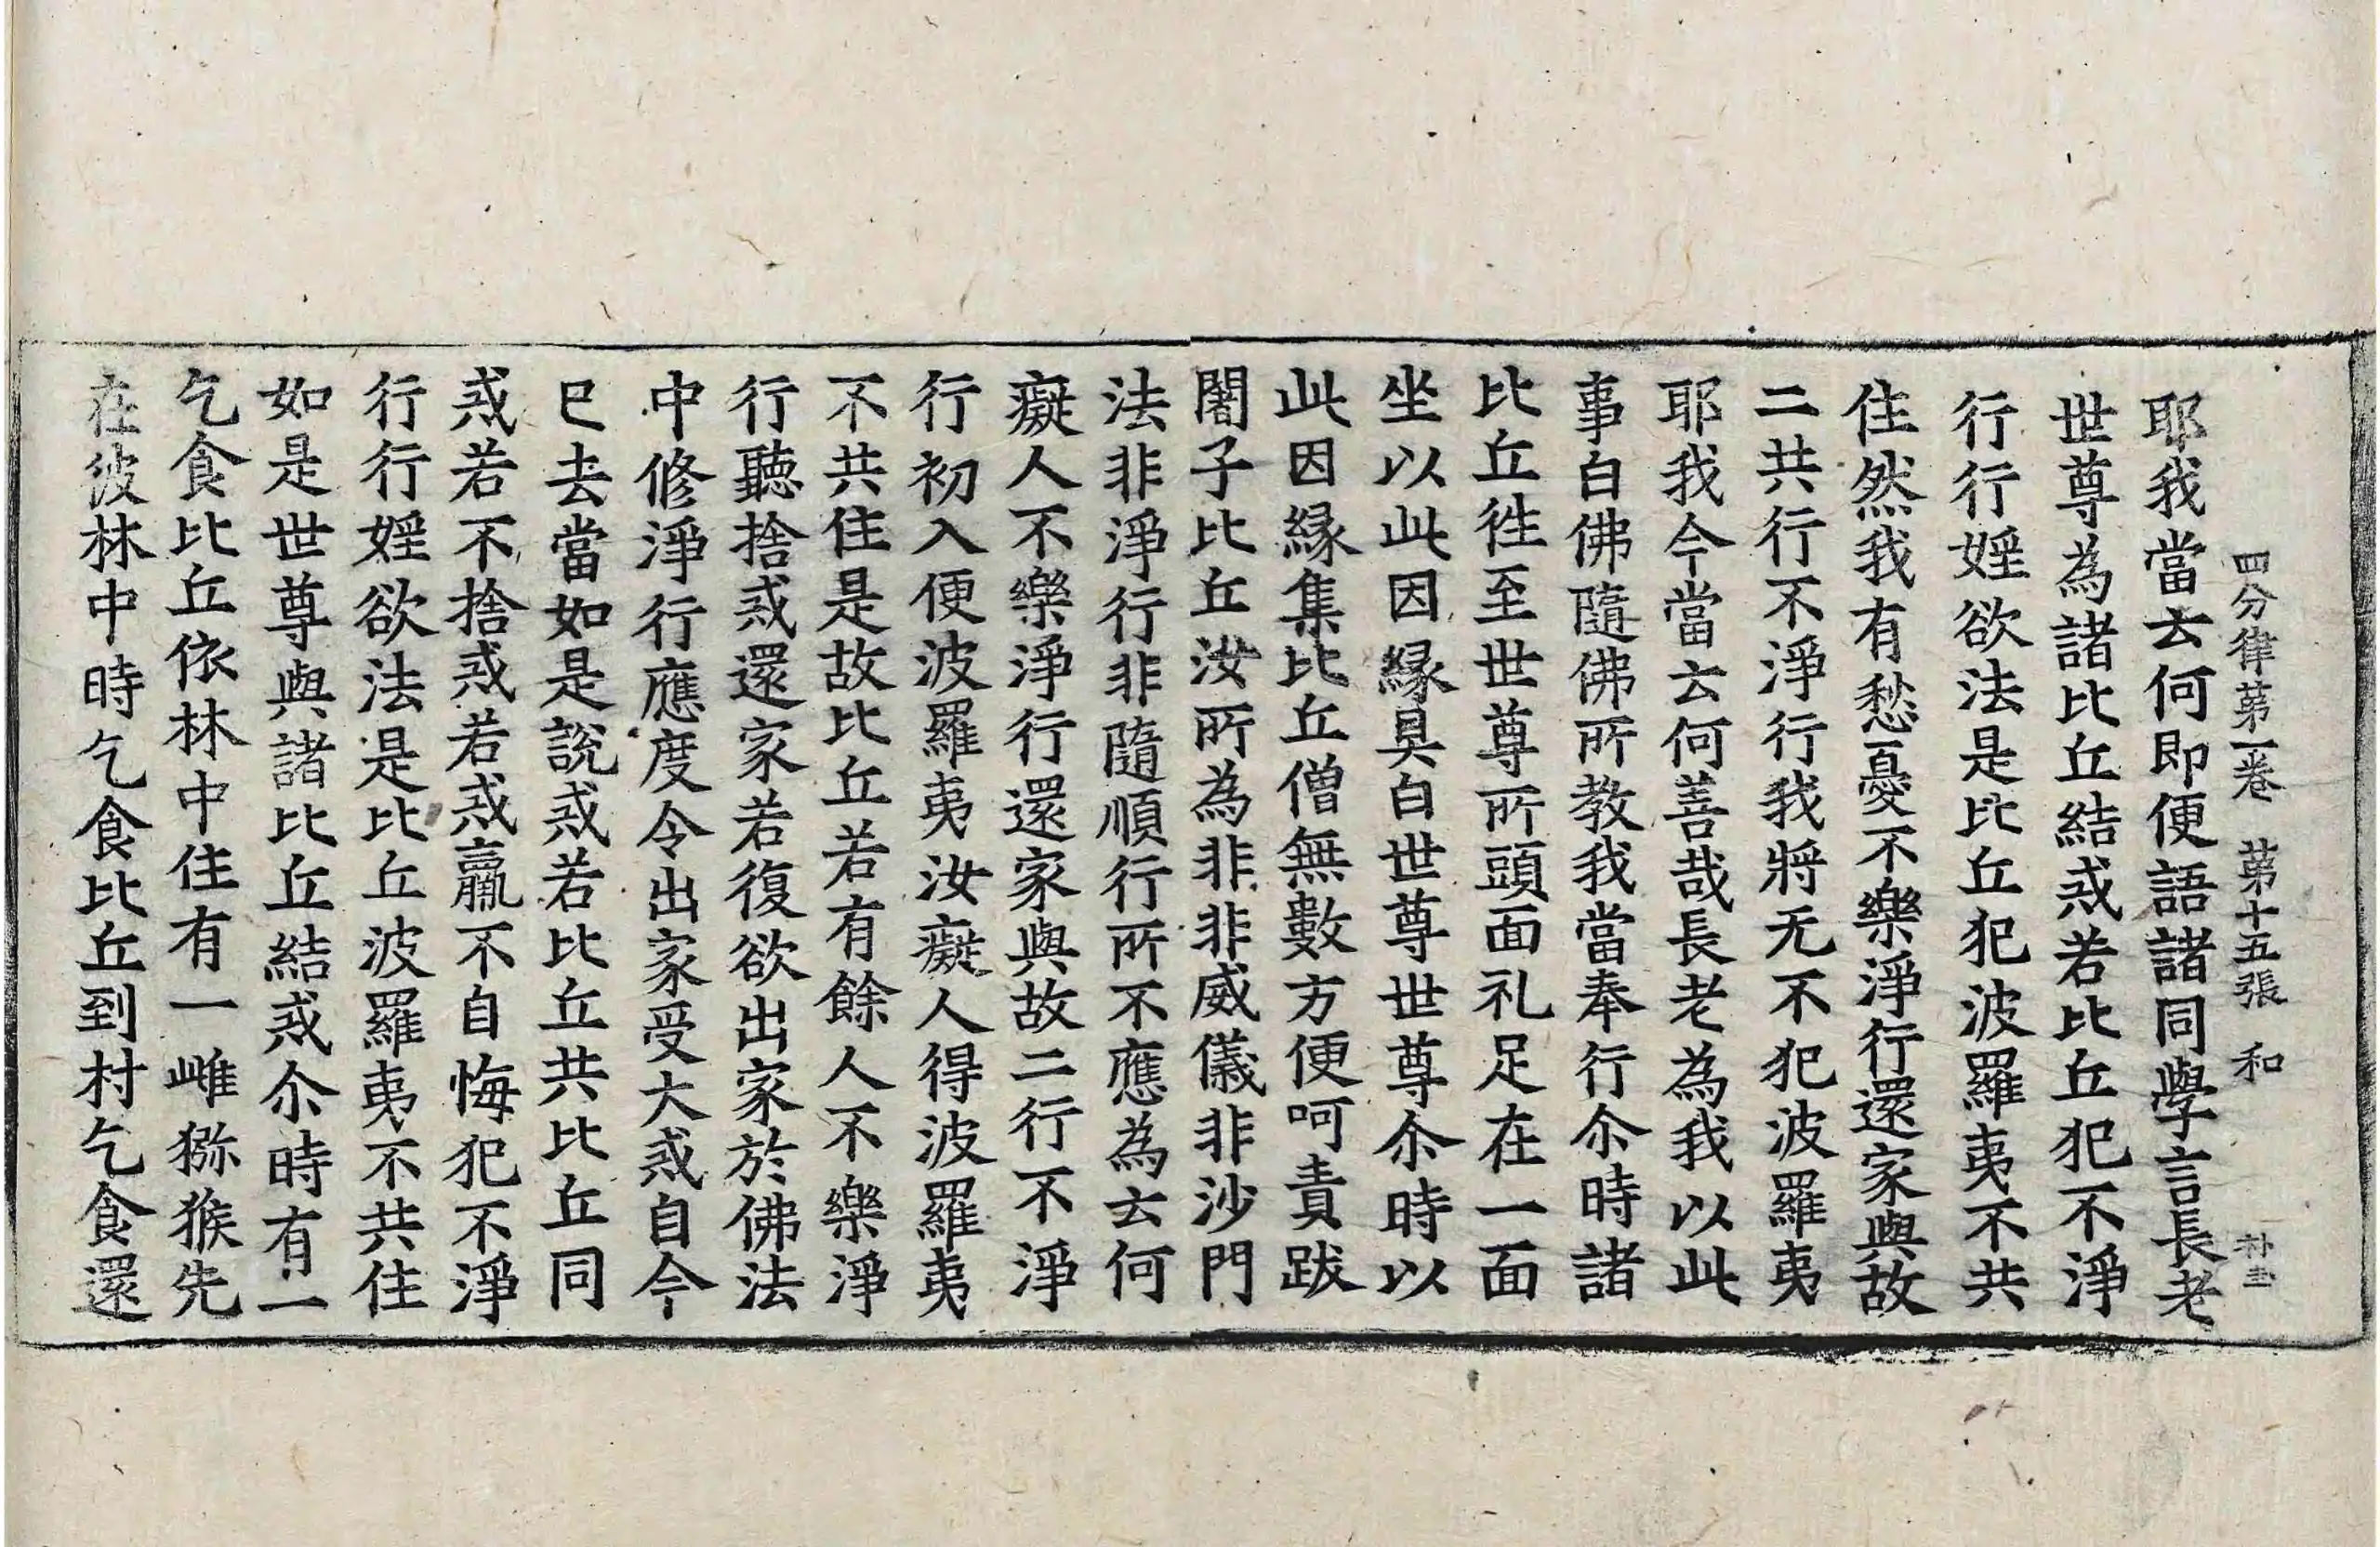 四分律第一卷 第十五張 和
耶我當云何即便語諸同學言長老
世尊為諸比丘結戒若比丘犯不淨
行行婬欲法是比丘犯波羅夷不共
住然我有愁憂不樂淨行還家與故
二共行不淨行我將无不犯波羅夷
耶我今當云何善哉長老為我以此
事白佛隨佛所教我當奉行尒時諸
比丘徃至世尊所頭面礼足在一面
坐以此因縁具白世尊世尊尒時以
此因縁集比丘僧無數方便呵責跋
闍子比丘汝所為非非威儀非沙門
法非淨行非隨順行所不應為云何
癡人不樂淨行還家與故二行不淨
行初入便波羅夷汝癡人得波羅夷
不共住是故比丘若有餘人不樂淨
行聽捨戒還家若復欲出家於佛法
中修淨行應度令出家受大戒自今
已去當如是說戒若比丘共比丘同
戒若不捨戒若戒羸不自悔犯不淨
行行婬欲法是比丘波羅夷不共住
如是世尊與諸比丘結戒尒時有一
乞食比丘依林中住有一雌猕猴先
在彼林中時乞食比丘到村乞食還